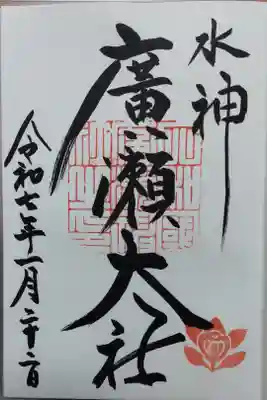 水神
廣瀬大社
令和七年一月二十二日